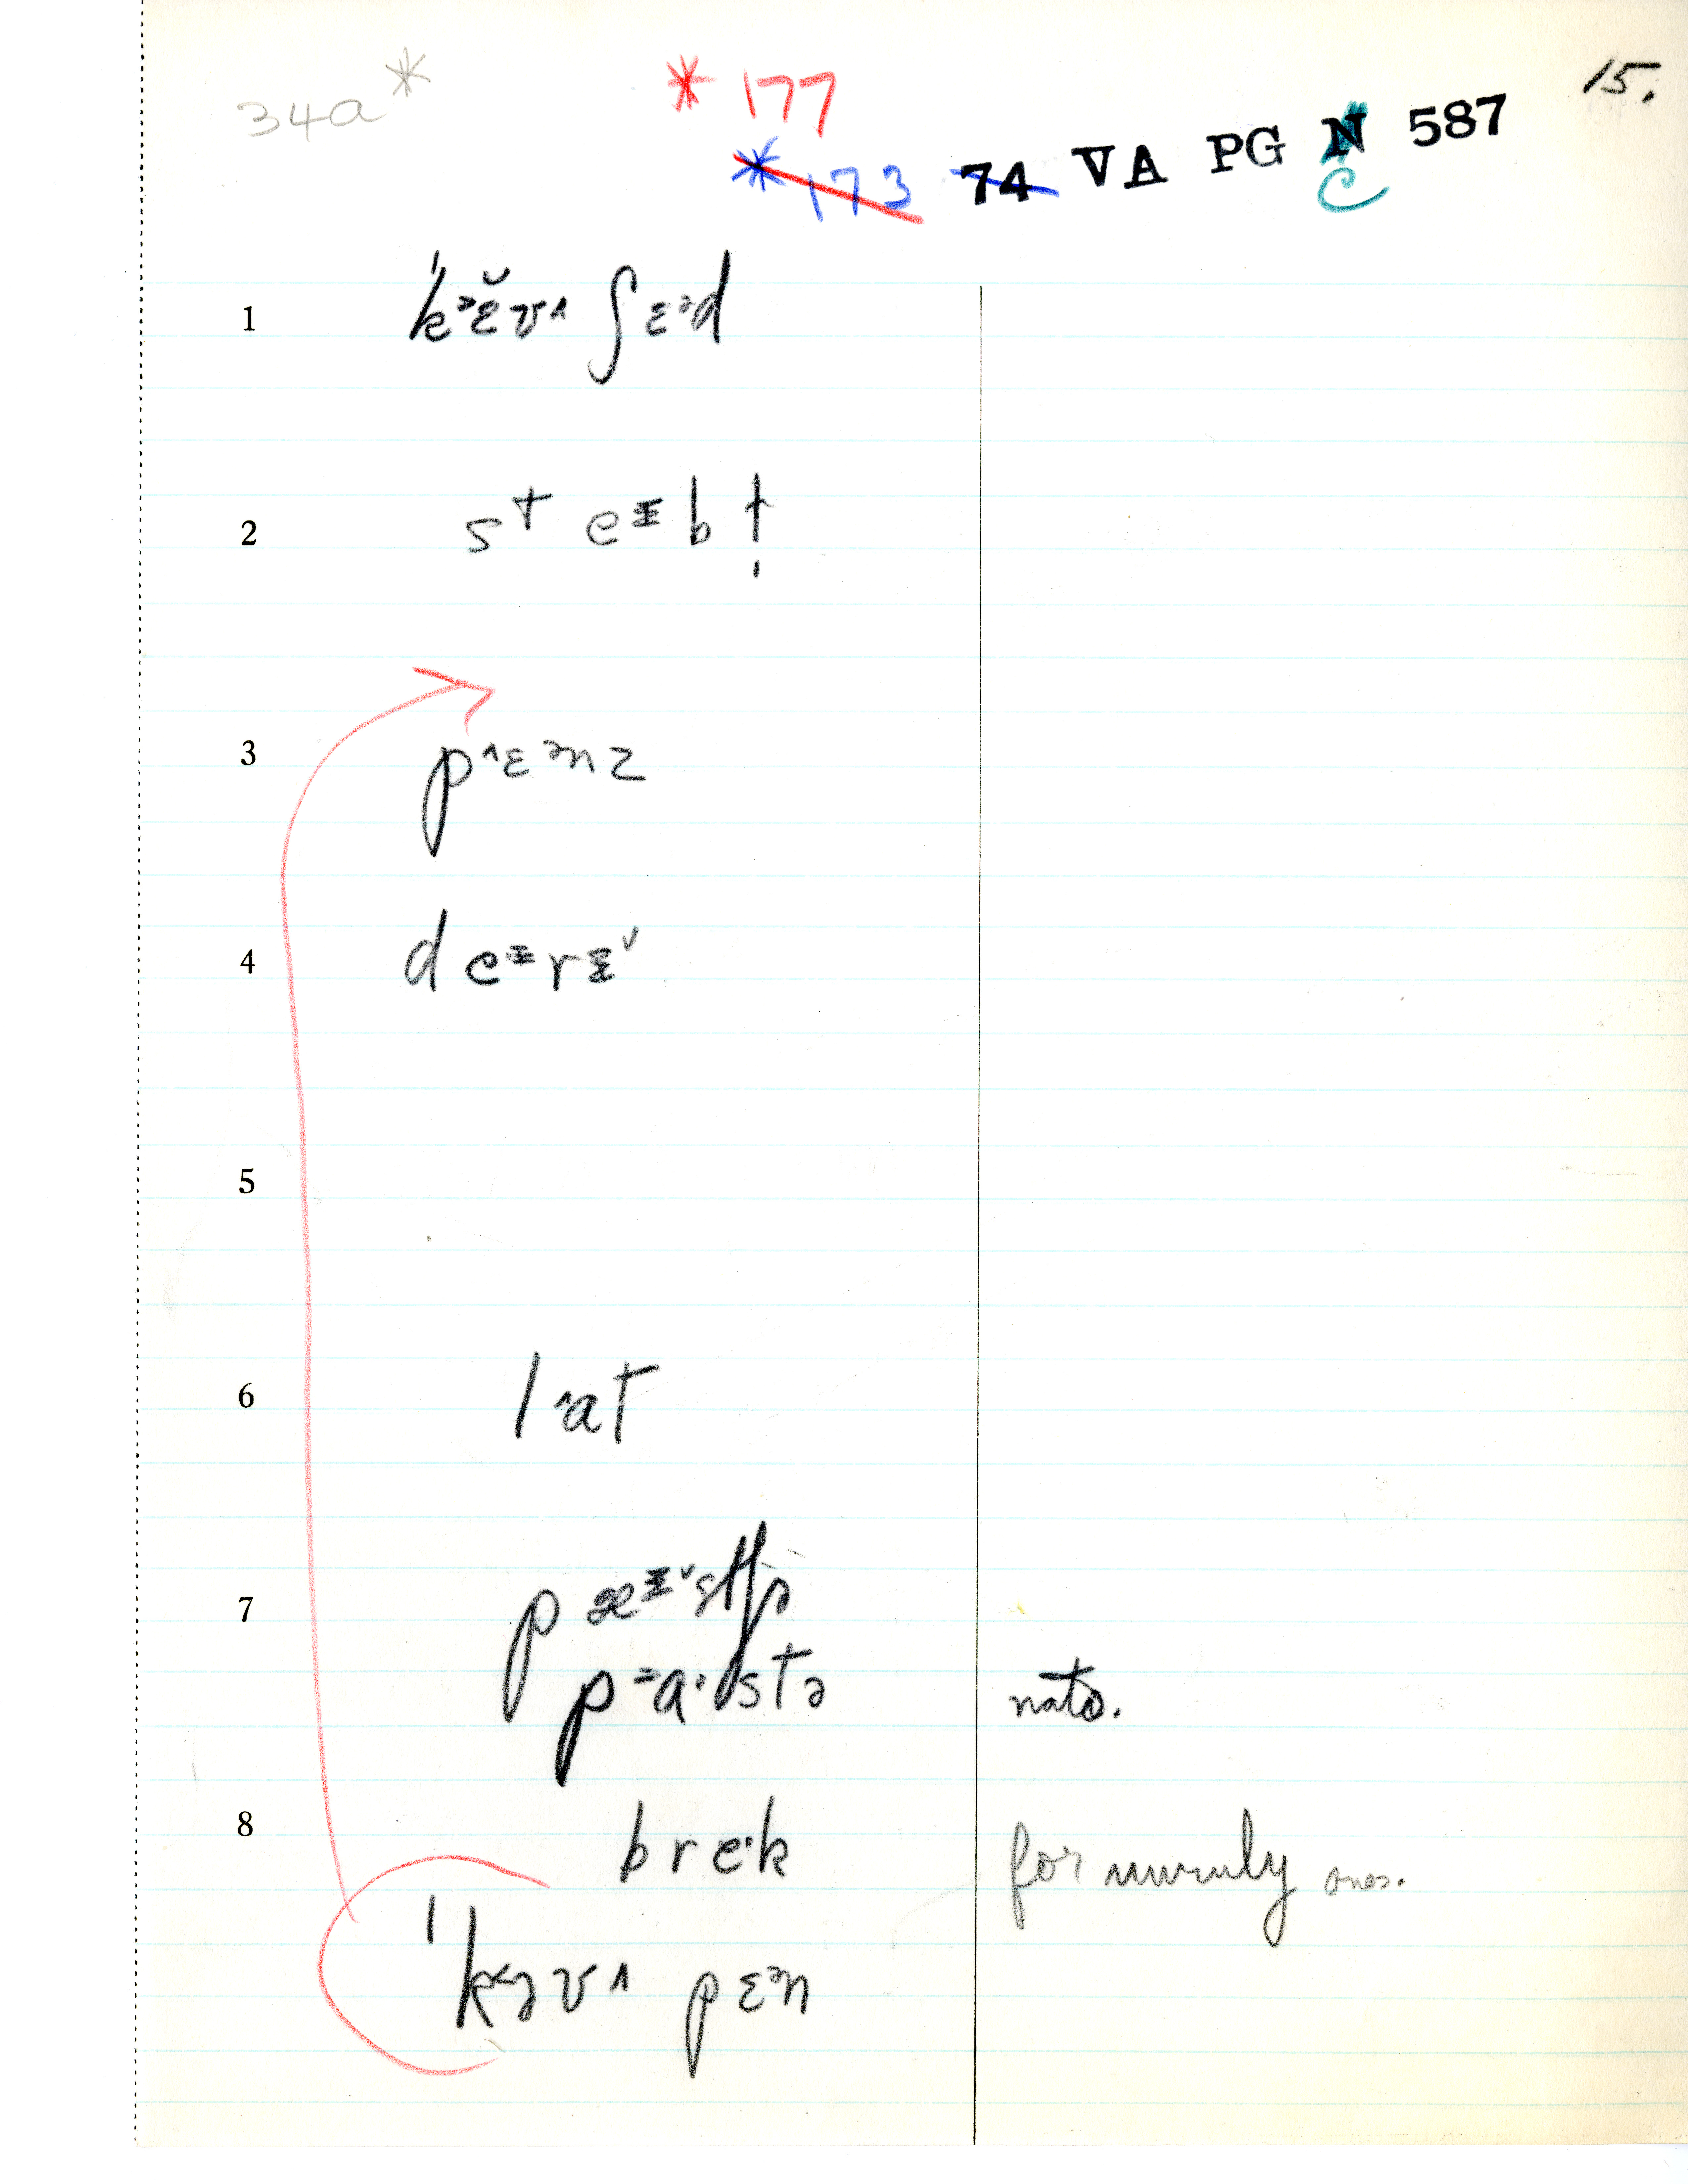 15.
34a*
* 177
* 173 74 VA PG N 587
C
1 ˈkᵊɛ̆v^ ʃɛᵊd
2 st eᵻb ɫ̩
3 p^ɛᵊnz
4 deᵻrᵻˇ
5
6 l^at
7 pæᵻˇstʃɚ
pᵊa·stə nato.
8 bre·k for unruly ones.
ˈk˂əv^ pɛᵊn